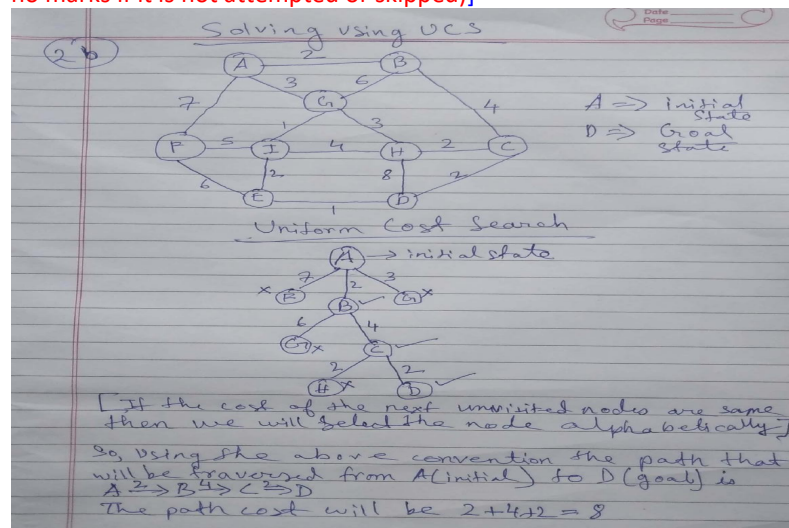 no marks if it is not attempted or skipped)]
Date
Page
Solving using UCS
2 b
A 2 B
3 6
G
7 1 3 4
A => initial
state
D => Goal
state
F 5 I 4 H 2 C
6 2 8 2
E 1 D
Uniform Cost Search
A → initial state
7 2 3
x F B ✓ G x
6 4
G x C ✓
2 2
H x D ✓
[If the cost of the next unvisited nodes are same
then we will select the node alphabetically]
So, using the above convention the path that
will be traversed from A(initial) to D(goal) is
A 2→ B 4→ C 2→ D
The path cost will be 2+4+2 = 8